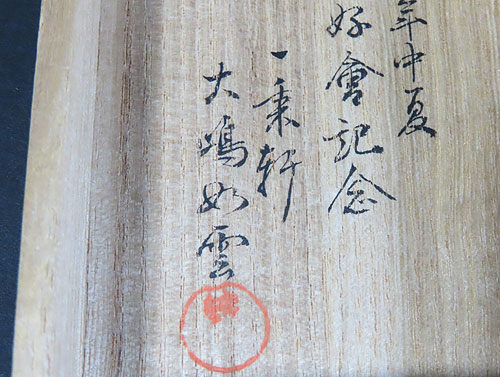 年中夏
好會記念
一 軒
大嶋如雲